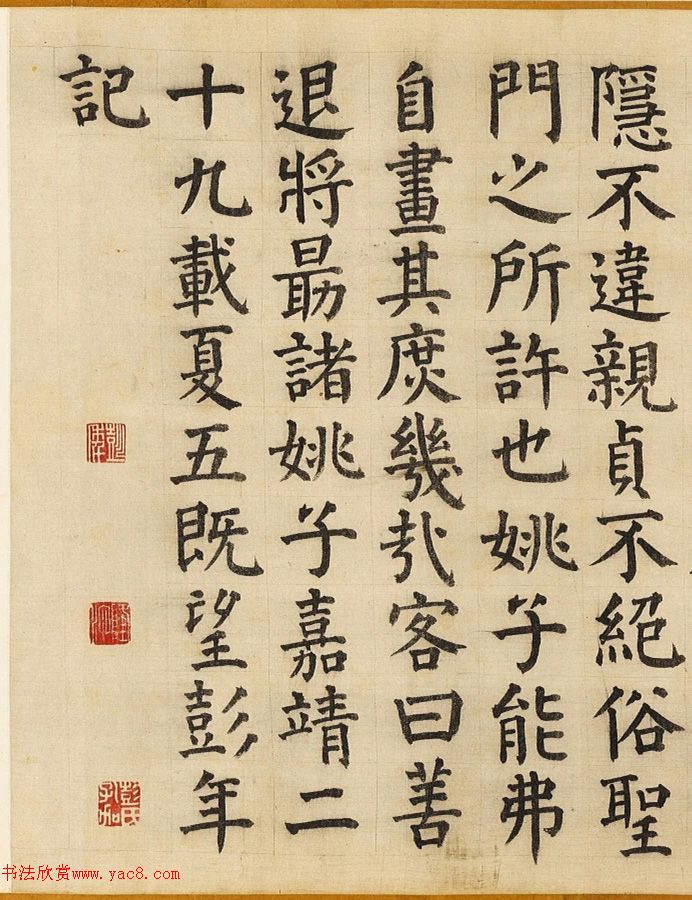 隱不違親貞不絕俗聖
門之所許也姚子能弗
自畫其庶幾哉客曰善
退將勗諸姚子嘉靖二
十九載夏五既望彭年
記
彭年
隆池
彭氏孔加
书法欣赏www.yac8.com